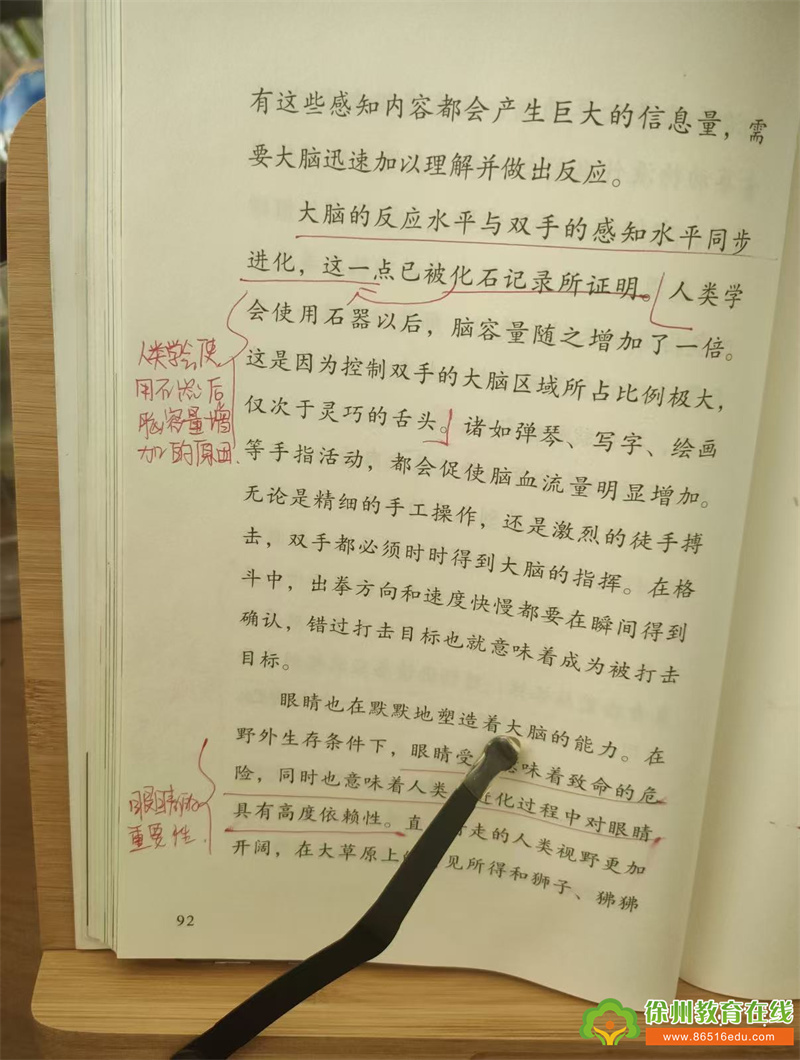 有这些感知内容都会产生巨大的信息量，需
要大脑迅速加以理解并做出反应。
大脑的反应水平与双手的感知水平同步
进化，这一点已被化石记录所证明。人类学
会使用石器以后，脑容量随之增加了一倍。
这是因为控制双手的大脑区域所占比例极大，
仅次于灵巧的舌头。诸如弹琴、写字、绘画
等手指活动，都会促使脑血流量明显增加。
无论是精细的手工操作，还是激烈的徒手搏
击，双手都必须时时得到大脑的指挥。在格
斗中，出拳方向和速度快慢都要在瞬间得到
确认，错过打击目标也就意味着成为被打击
目标。
眼睛也在默默地塑造着大脑的能力。在
野外生存条件下，眼睛受 意味着致命的危
险，同时也意味着人类 进化过程中对眼睛
具有高度依赖性。直 行走的人类视野更加
开阔，在大草原上 见所得和狮子、狒狒
人类学会使
用石器后
脑容量增
加的原因.
眼睛的
重要性.
92
徐州教育在线
www.86516edu.com